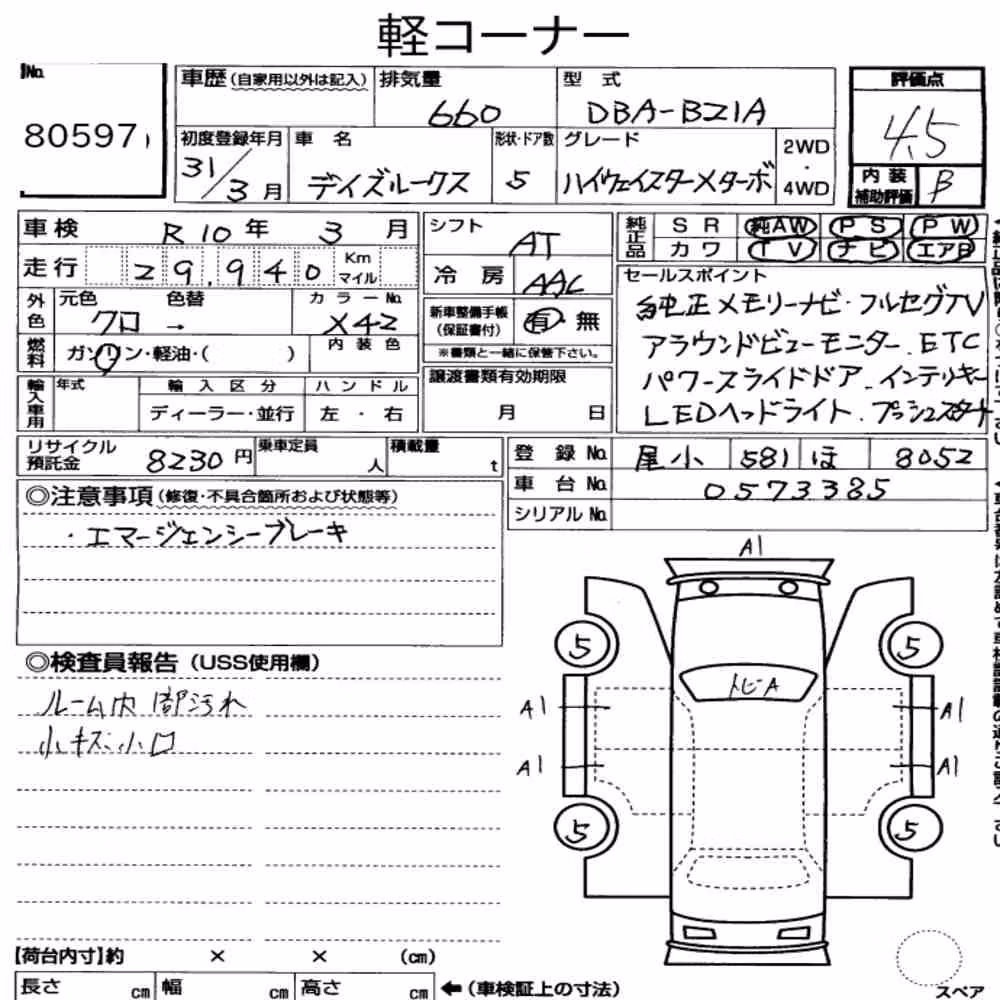 軽コーナー
No.
80597
車歴(自家用以外は記入)
排気量
660
型式
DBA-BZ1A
評価点
4.5
初度登録年月
31/3月
車名
デイズルークス
形状・ドア数
5
グレード
ハイウェイスターXターボ
2WD・4WD
内装補助評価
B
車検 R10年 3月
シフト
AT
純正品
SR 純AW PS PW
カワ TV ナビ エアB
走行 29,940 Km マイル
冷房
AAC
セールスポイント
純正メモリーナビ・フルセグTV
アラウンドビューモニター.ETC
パワースライドドア.インテリキー
LEDヘッドライト.プッシュスタート
外色
元色
クロ→
色替
カラーNo.
X42
新車整備手帳(保証書付)
有・無
※書類と一緒に保管下さい。
燃料
ガソリン・軽油・( )
内装色
輸入車用
年式
輸入区分
ディーラー・並行
ハンドル
左・右
譲渡書類有効期限
月 日
リサイクル預託金 8230円
乗車定員
人
積載量
t
登録No. 尾小 581 ほ 8052
車台No. 0573385
シリアルNo.
◎注意事項(修復・不具合箇所および状態等)
・エマージェンシーブレーキ
◎検査員報告(USS使用欄)
ルーム内 部汚れ
小キズ.小凹
A1
5
5
トビA
A1
A1
A1
A1
5
5
スペア
【荷台内寸】約 × × (cm)
長さ cm 幅 cm 高さ cm ←(車検証上の寸法)